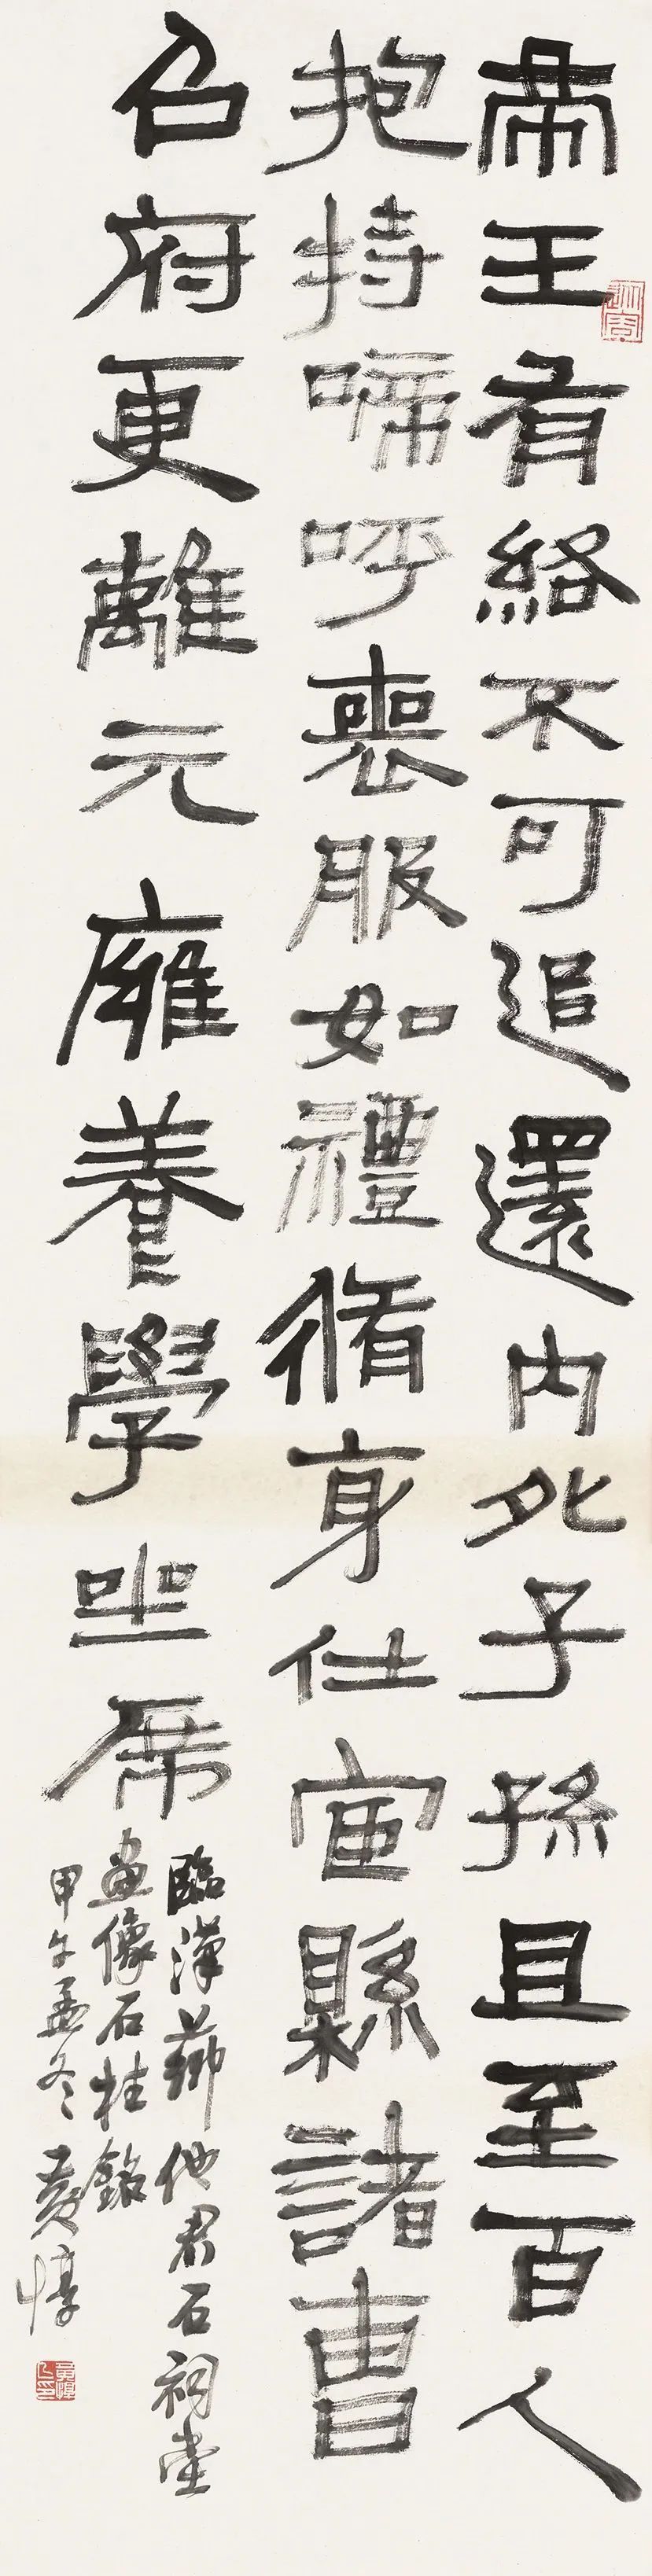 帝王有絡不可追還內死子孫且至百人
抱持啼呼喪服如禮脩身仕宦縣諸曹
召府更離元雍養學坐席
臨漢薌他君石祠堂
畫像石柱銘
甲午孟冬黃惇